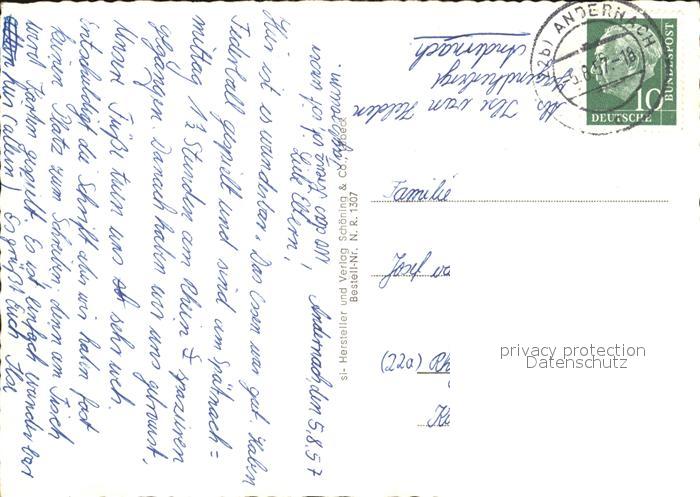 Andernach, den 5.8.57
Liebe Eltern,
Hier ist es wunderbar. Das Essen war gut. Haben
Federball gespielt und sind am Spätnach=
mittag 1½ Stunden am Rhein spazieren
gegangen. Danach haben wir uns getrennt,
Füße tun uns sehr weh.
Entschuldigt die Schrift aber wir haben fast
keinen Platz zum Schreiben, denn am Tisch
wird gespielt. Es ist einfach wunderbar
hier (allen) Es grüßt Euch
Abs.
Jugendherberge
Andernach
ANDERNACH
BUNDESPOST
10
DEUTSCHE
Familie
Josef
(22a) Rh
si- Hersteller und Verlag Schöning & Co., Lübeck
Bestell-Nr. N. R. 1307
privacy protection
Datenschutz